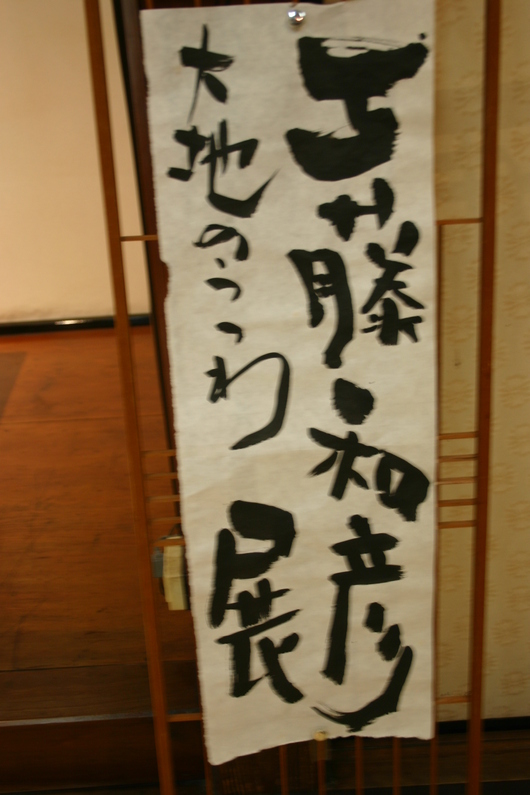 工藤和彦
大地のうつわ展